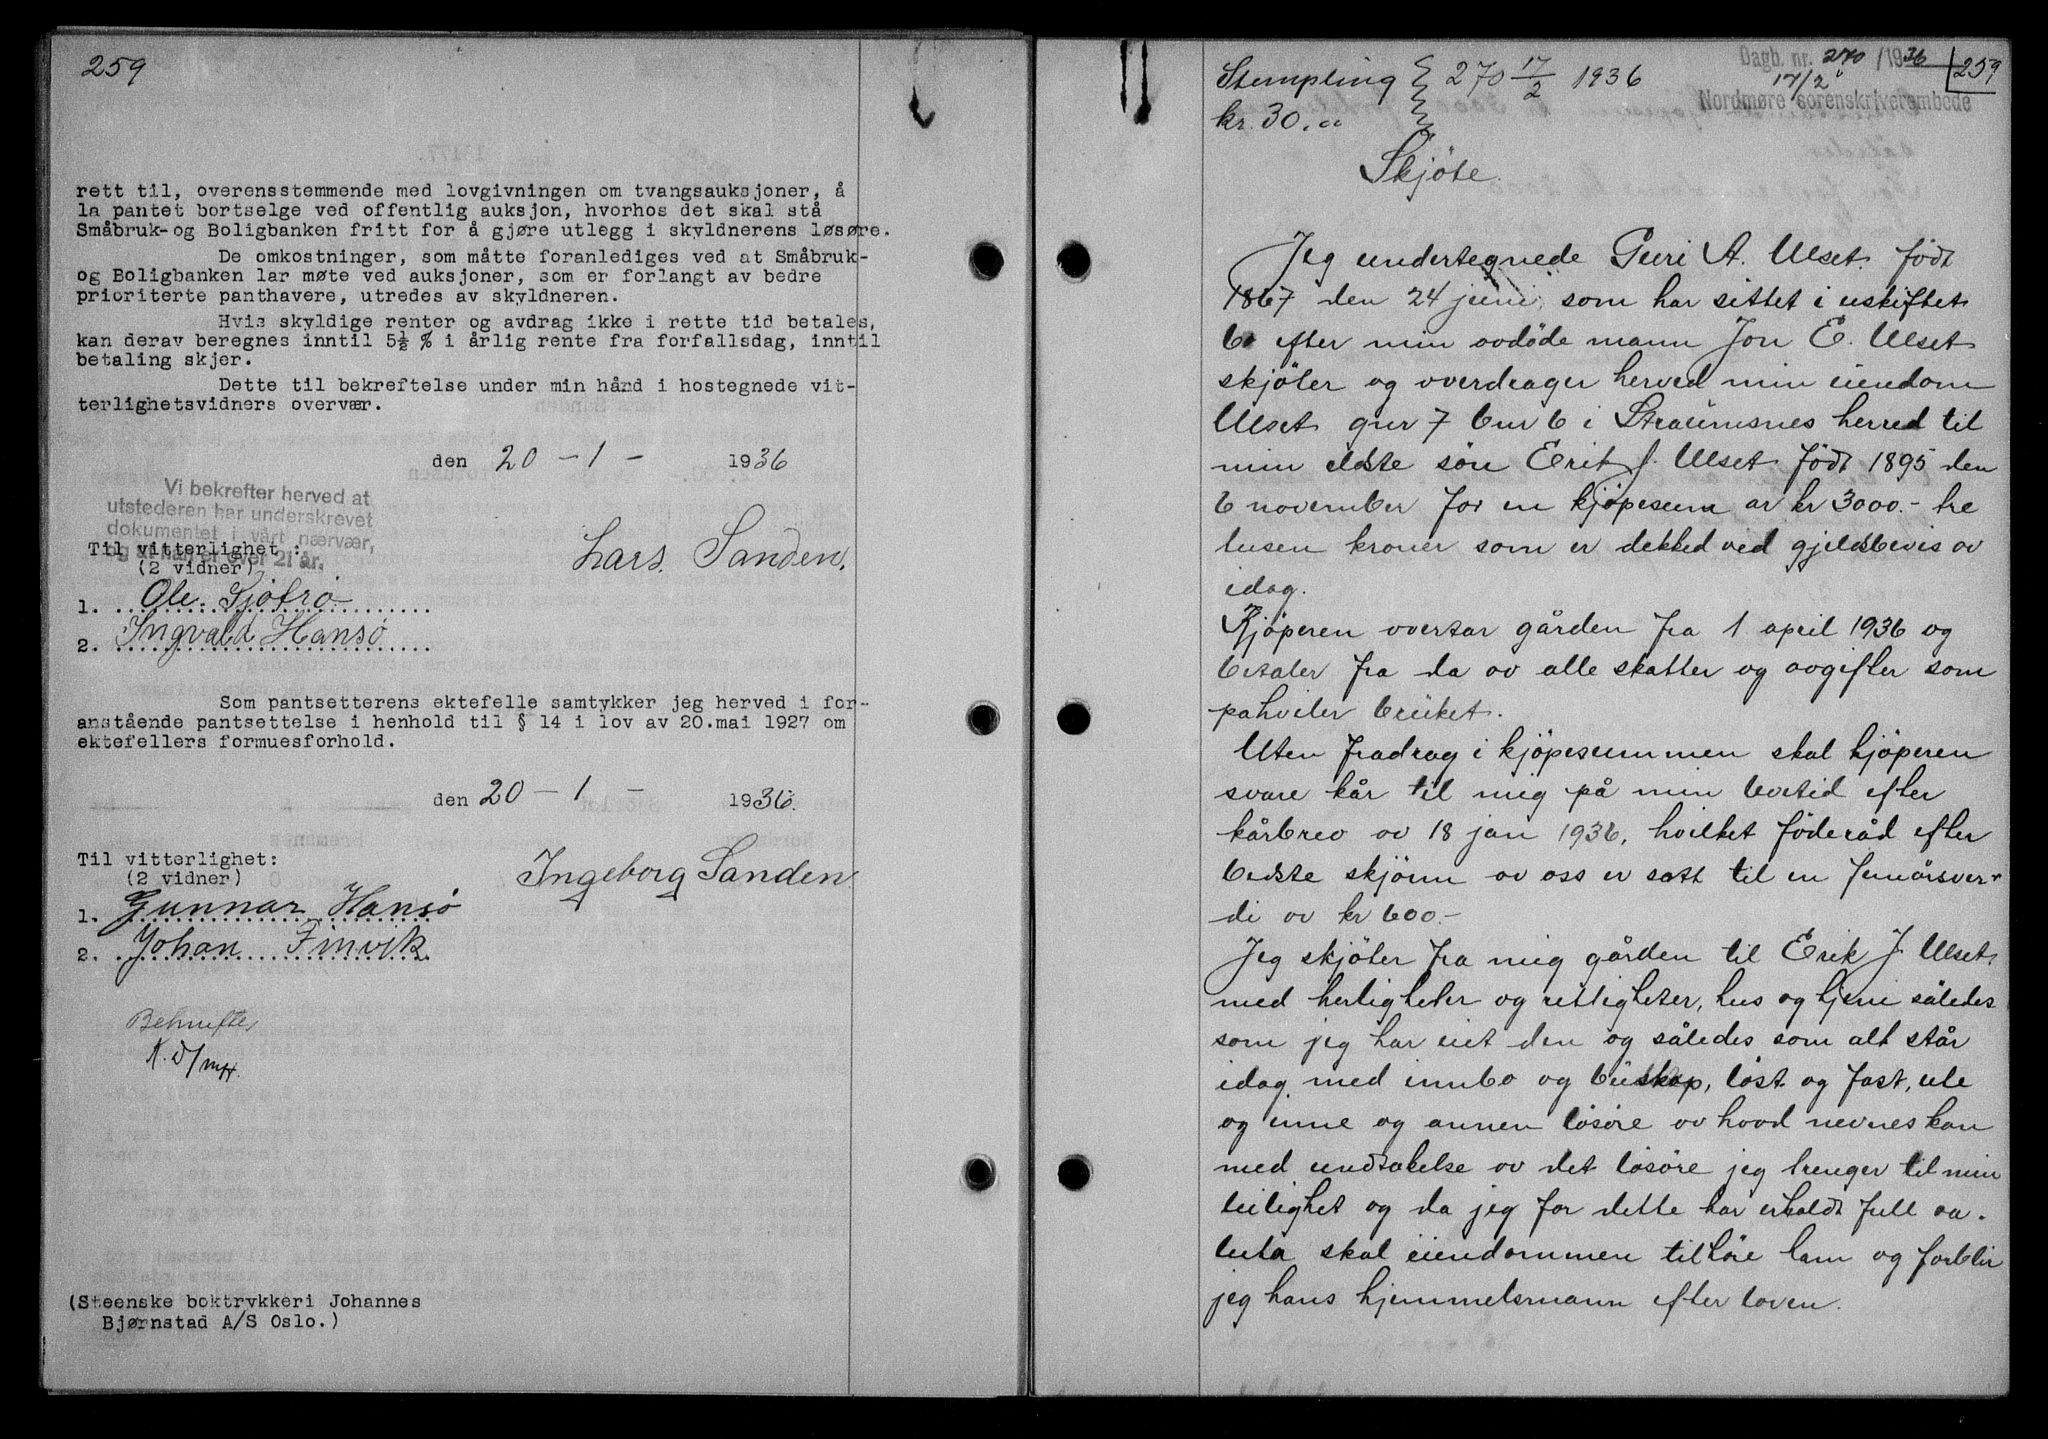 259
rett til, overensstemmende med lovgivningen om tvangsauksjoner, å
la pantet bortselge ved offentlig auksjon, hvorhos det skal stå
Småbruk-og Boligbanken fritt for å gjøre utlegg i skyldnerens løsøre.
De omkostninger, som måtte foranlediges ved at Småbruk-
og Boligbanken lar møte ved auksjoner, som er forlangt av bedre
prioriterte panthavere, utredes av skyldneren.
Hvis skyldige renter og avdrag ikke i rette tid betales,
kan derav beregnes inntil 5½ % i årlig rente fra forfallsdag, inntil
betaling skjer.
Dette til bekreftelse under min hånd i hostegnede vit-
terlighetsvidners overvær.
den 20 - 1 - 1936
Vi bekrefter herved at
utstederen har underskrevet
dokumentet i vårt nærvær,
og at han er over 21 år.
Lars Sanden.
Til vitterlighet:
(2 vidner)
1. Ole
2. Ingvald Hansø
Som pantsetterens ektefelle samtykker jeg herved i for-
anstående pantsettelse i henhold til § 14 i lov av 20.mai 1927 om
ektefellers formuesforhold.
den 20 - 1 - 1936.
Til vitterlighet:
(2 vidner)
Ingeborg Sanden
1. Gunnar Hansø
2. Johan Finvik
(Steenske boktrykkeri Johannes
Bjørnstad A/S Oslo.)
Dagb. nr. 270 /1936
17/2
Nordmøre sorenskriverembede
259
Stempling 270 17/2 1936
kr. 30.00
Skjöte.
Jeg undertegnede Guri A. Ulset födt
1867 den 24 juni, som har sittet i uskiftet
bo efter min avdöde mann Jon E. Ulset
skjöter og overdrager herved min eiendom
Ulset gnr 7 bnr 6 i Straumsnes herred til
min eldste sön Erik J. Ulset födt 1895 den
6 november for en kjöpesum av kr 3000.- tre
tusen kroner som er dekked ved gjeldsbevis av
idag.
Kjöperen overtar gården fra 1 april 1936 og
betaler fra da av alle skatter og avgifter som
påhviler bruket.
Uten fradrag i kjöpesummen skal kjöperen
svare kår til mig på min levetid efter
kårbrev av 18 jan 1936, hvilket föderåd efter
bedste skjönn av oss er satt til en femårsver-
di av kr 600.-
Jeg skjöter fra mig gården til Erik J. Ulset
med herligheter og rettigheter, hus og hjem således
som jeg har eiet den og således som alt står
idag med innbo og buskap, löst og fast, ute
og inne og annen lösöre av hvad nevnes kan
med undtakelse av det lösöre jeg trenger til min
leilighet og da jeg for dette har erholdt full va-
luta skal eiendommen tilhöre ham og forblir
jeg hans hjemmelsmann efter loven.